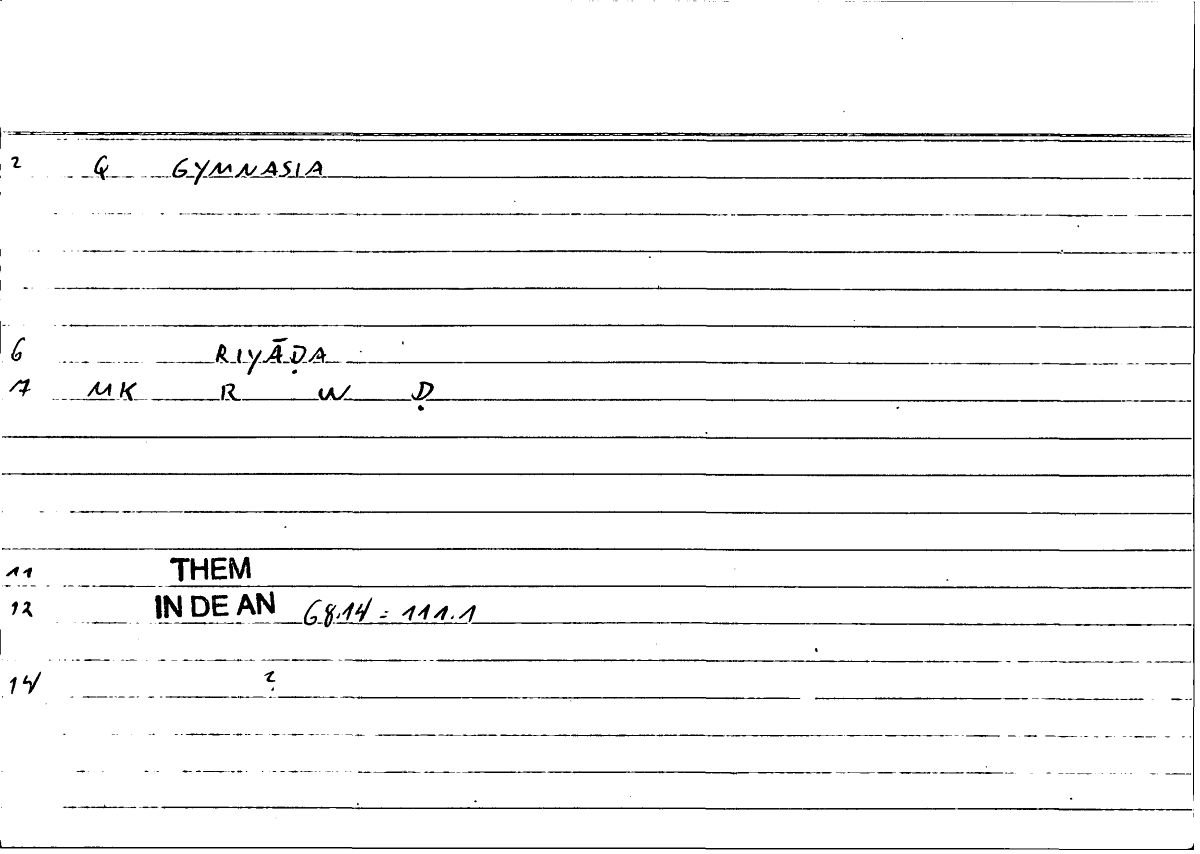 2 Q GYMNASIA
6 RIYĀḌA
7 MK R W Ḍ
11 THEM
12 IN DE AN 68.14 = 111.1
14 ?